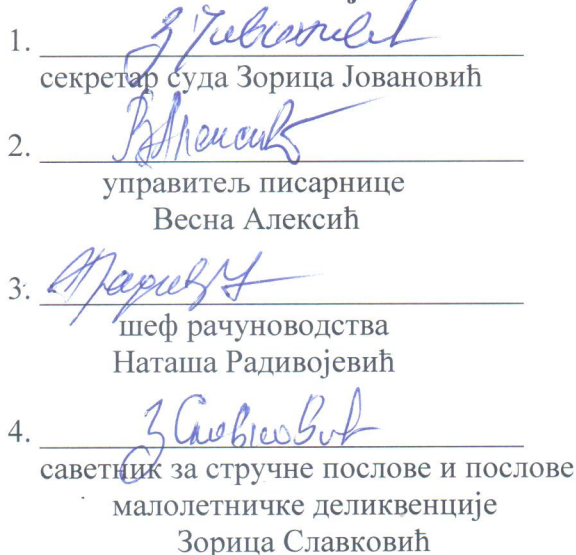 1.
секретар суда Зорица Јовановић
2.
управитељ писарнице
Весна Алексић
3.
шеф рачуноводства
Наташа Радивојевић
4. З Славковић
саветник за стручне послове и послове
малолетничке деликвенције
Зорица Славковић